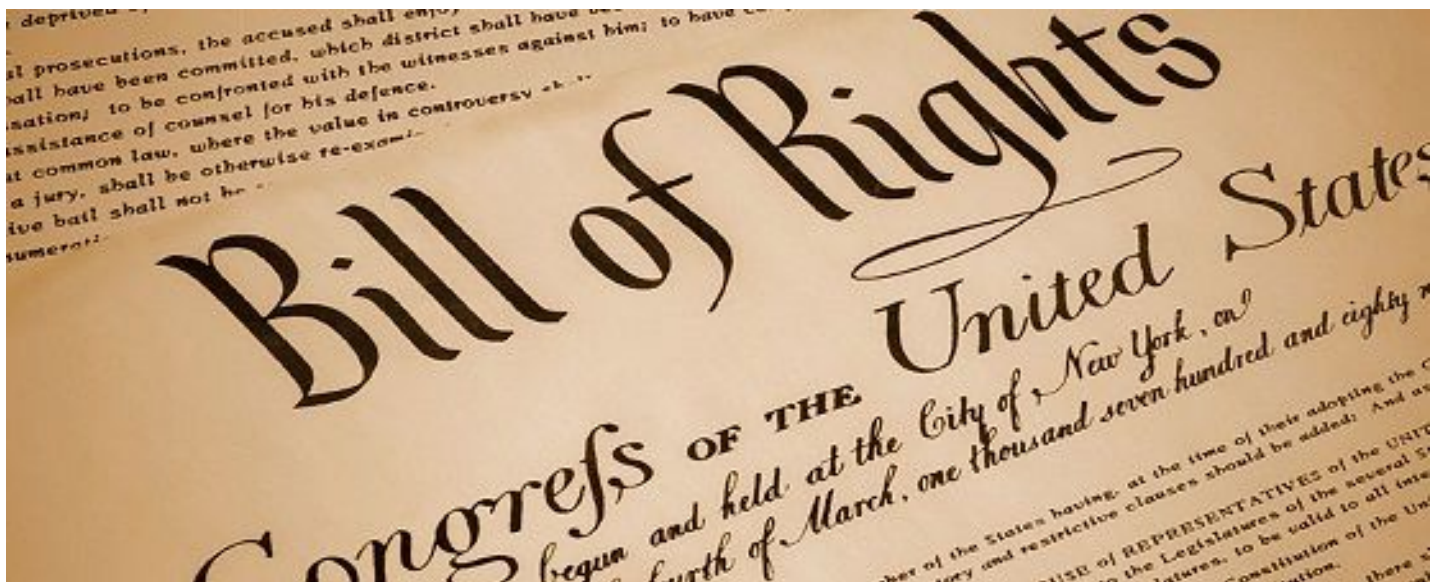 deprived
prosecutions, the accused shall enjoy
all have been committed, which district shall have
sation; to be confronted with the witnesses against him; to have
assistance of counsel for his defence.
at common law, where the value in controversy
a jury, shall be otherwise re-exam
ive bail shall not be
Bill of Rights
Congreſs OF THE United States
begun and held at the City of New York, on
of March, one thousand seven hundred and eighty
of the States having, at the time of their adopting the
and restrictive clauses should be added: And
of REPRESENTATIVES of the UNIT
the Legislatures of the several
to be valid to all
Constitution of the